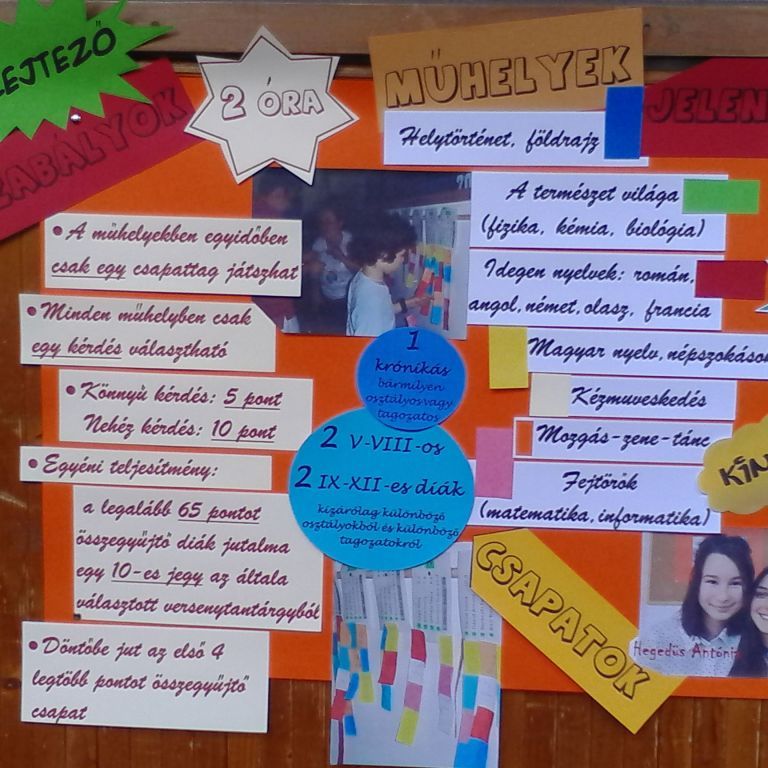 EJTEZŐ
ZABÁLYOK
2 ÓRA
• A műhelyekben egyidőben
csak egy csapattag játszhat
• Minden műhelyben csak
egy kérdés választható
• Könnyű kérdés: 5 pont
Nehéz kérdés: 10 pont
• Egyéni teljesítmény:
a legalább 65 pontot
összegyűjtő diák jutalma
egy 10-es jegy az általa
választott versenytantárgyból
• Döntőbe jut az első 4
legtöbb pontot összegyűjtő
csapat
MŰHELYEK
JELEN
Helytörténet, földrajz
A természet világa
(fizika, kémia, biológia)
Idegen nyelvek: román,
angol, német, olasz, francia
Magyar nyelv, népszokások
Kézmuveskedés
Mozgás-zene-tánc
Fejtörők
(matematika, informatika)
1
krónikás
bármilyen
osztályos vagy
tagozatos
2 V-VIII-os
2 IX-XII-es diák
kizárólag különböző
osztályokból és különböző
tagozatokról
KIN
CSAPATOK
Hegedűs Antóni